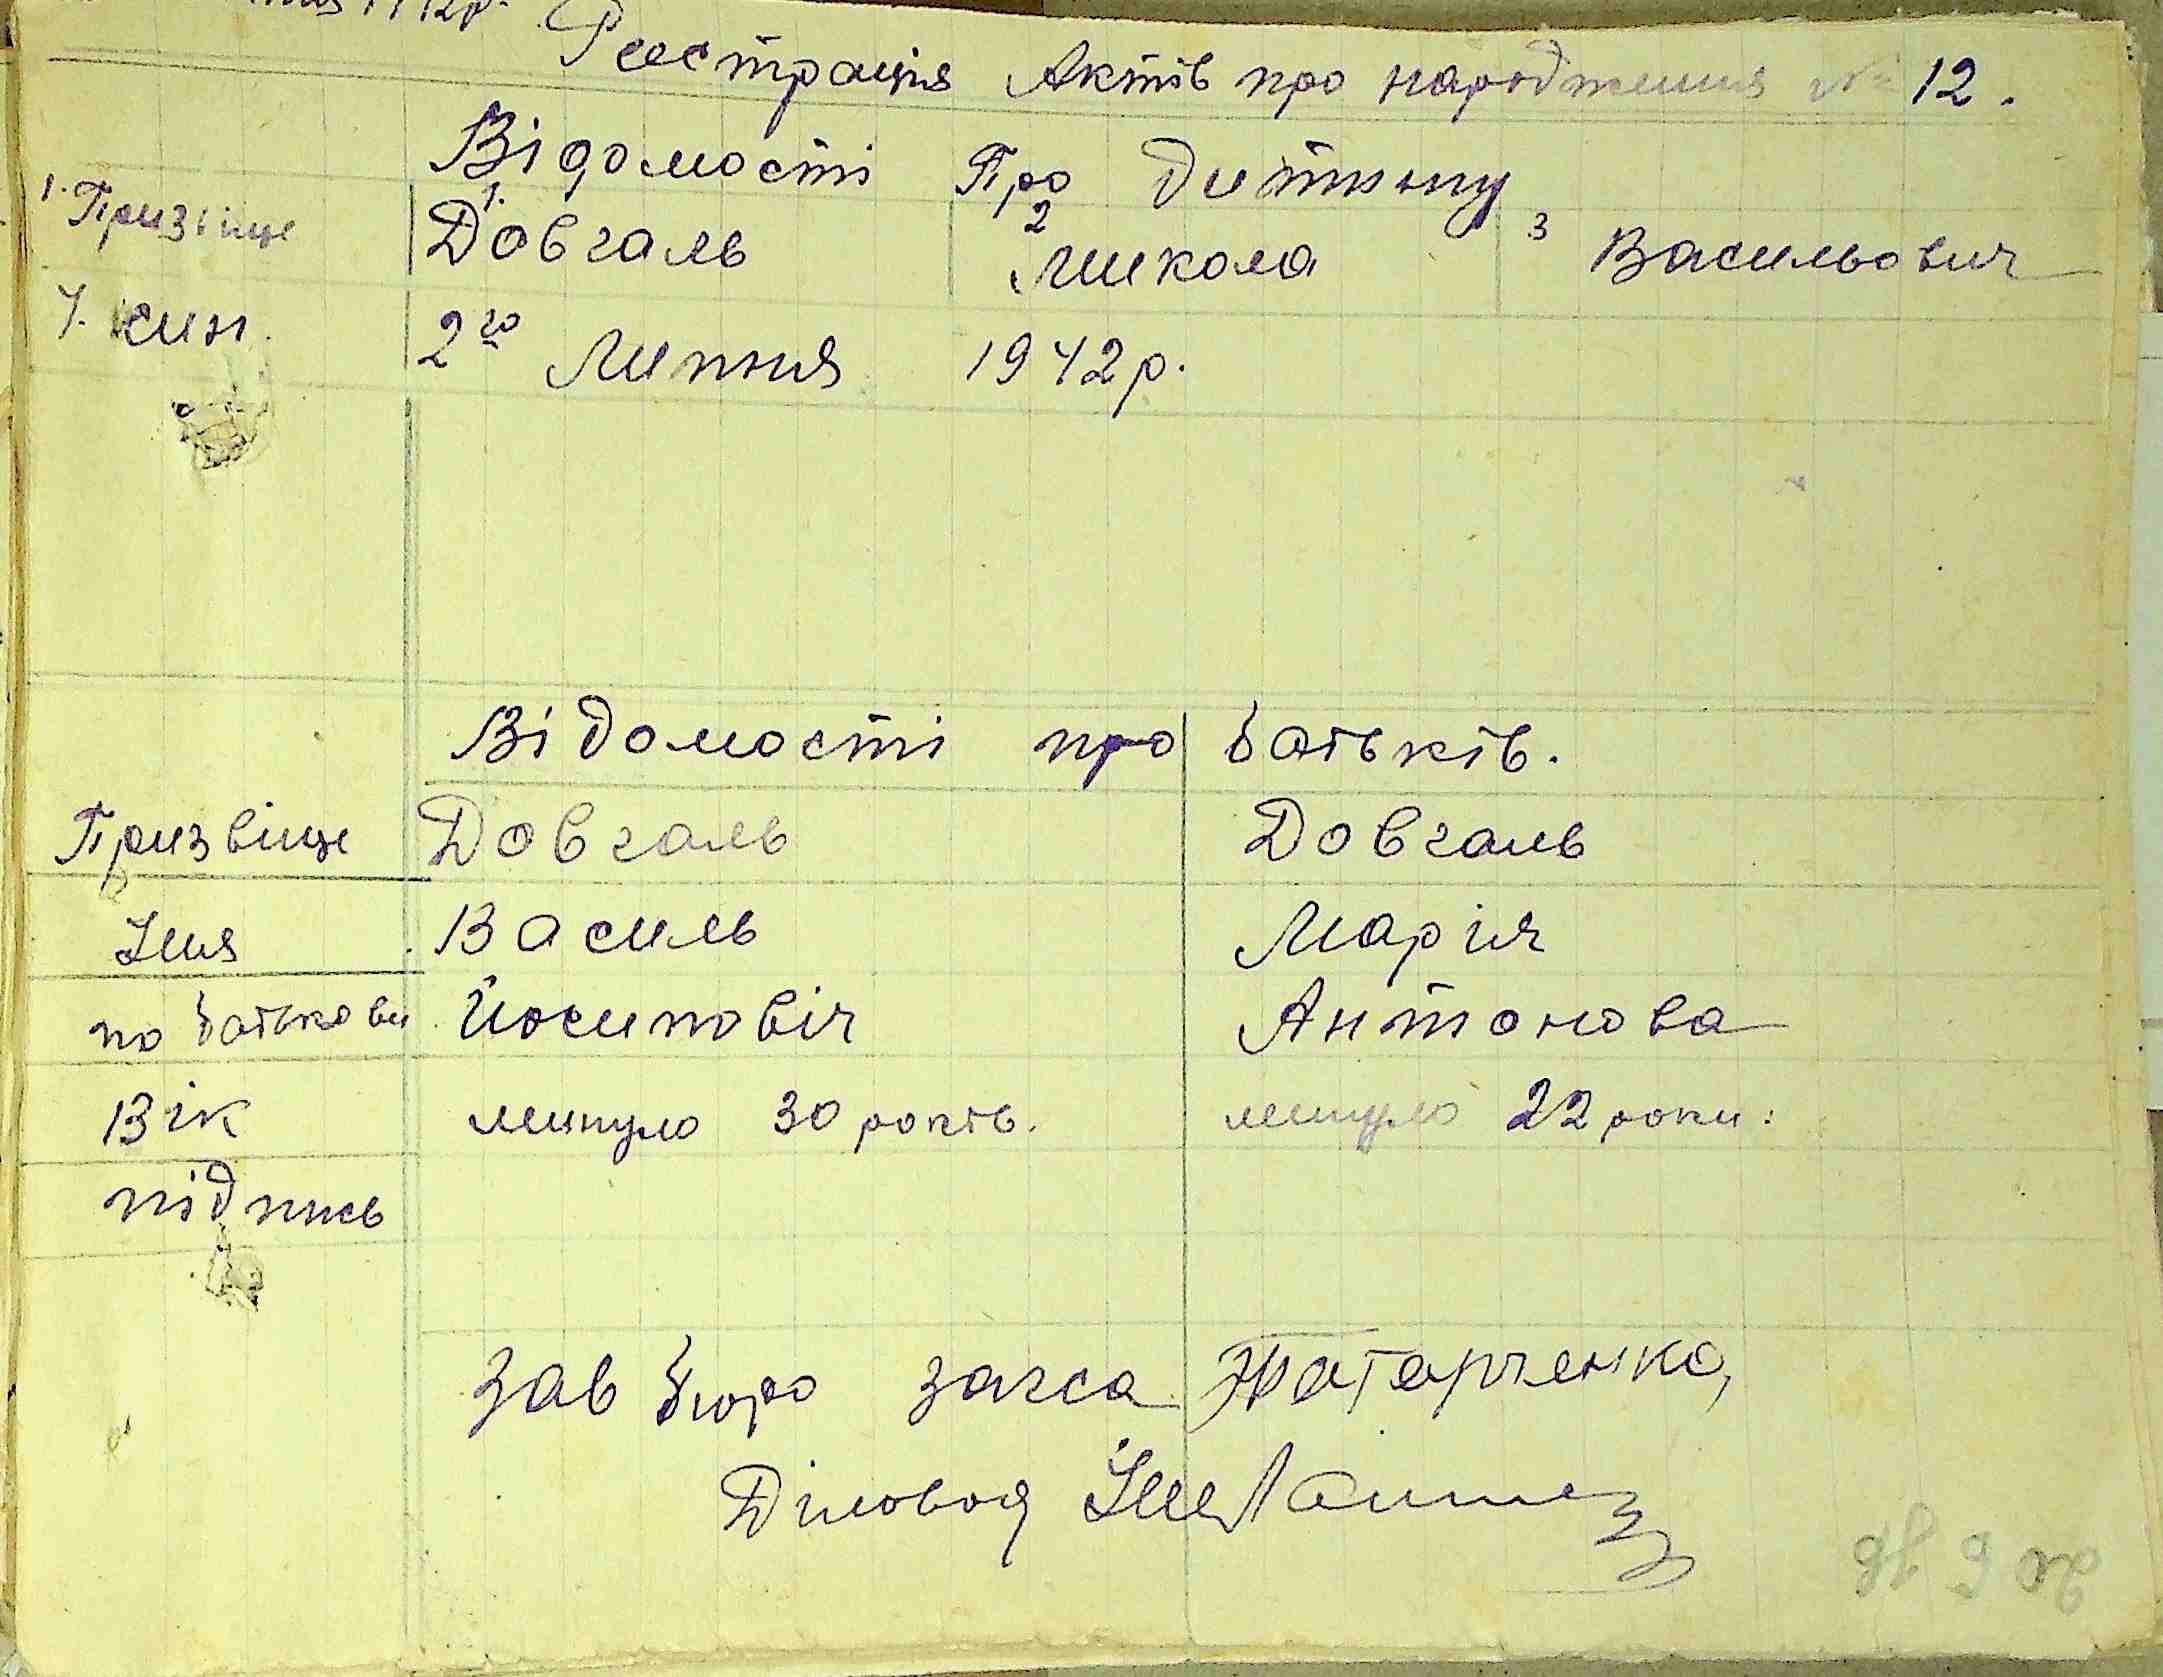 1942р.
Реєстрація Актів про народження № 12.
Відомості Про дитину
1. Призвіще 1. Довгаль 2 Микола 3 Васильович
4. син. 2го Липня 1942 р.
Відомості про батьків.
Призвіще Довгаль Довгаль
Імя Василь Марія
по батькови Йосиповіч Антонова
Вік минуло 30 років. минуло 22 роки.
підпись
Зав бюро загса Татарченко,
Діловод